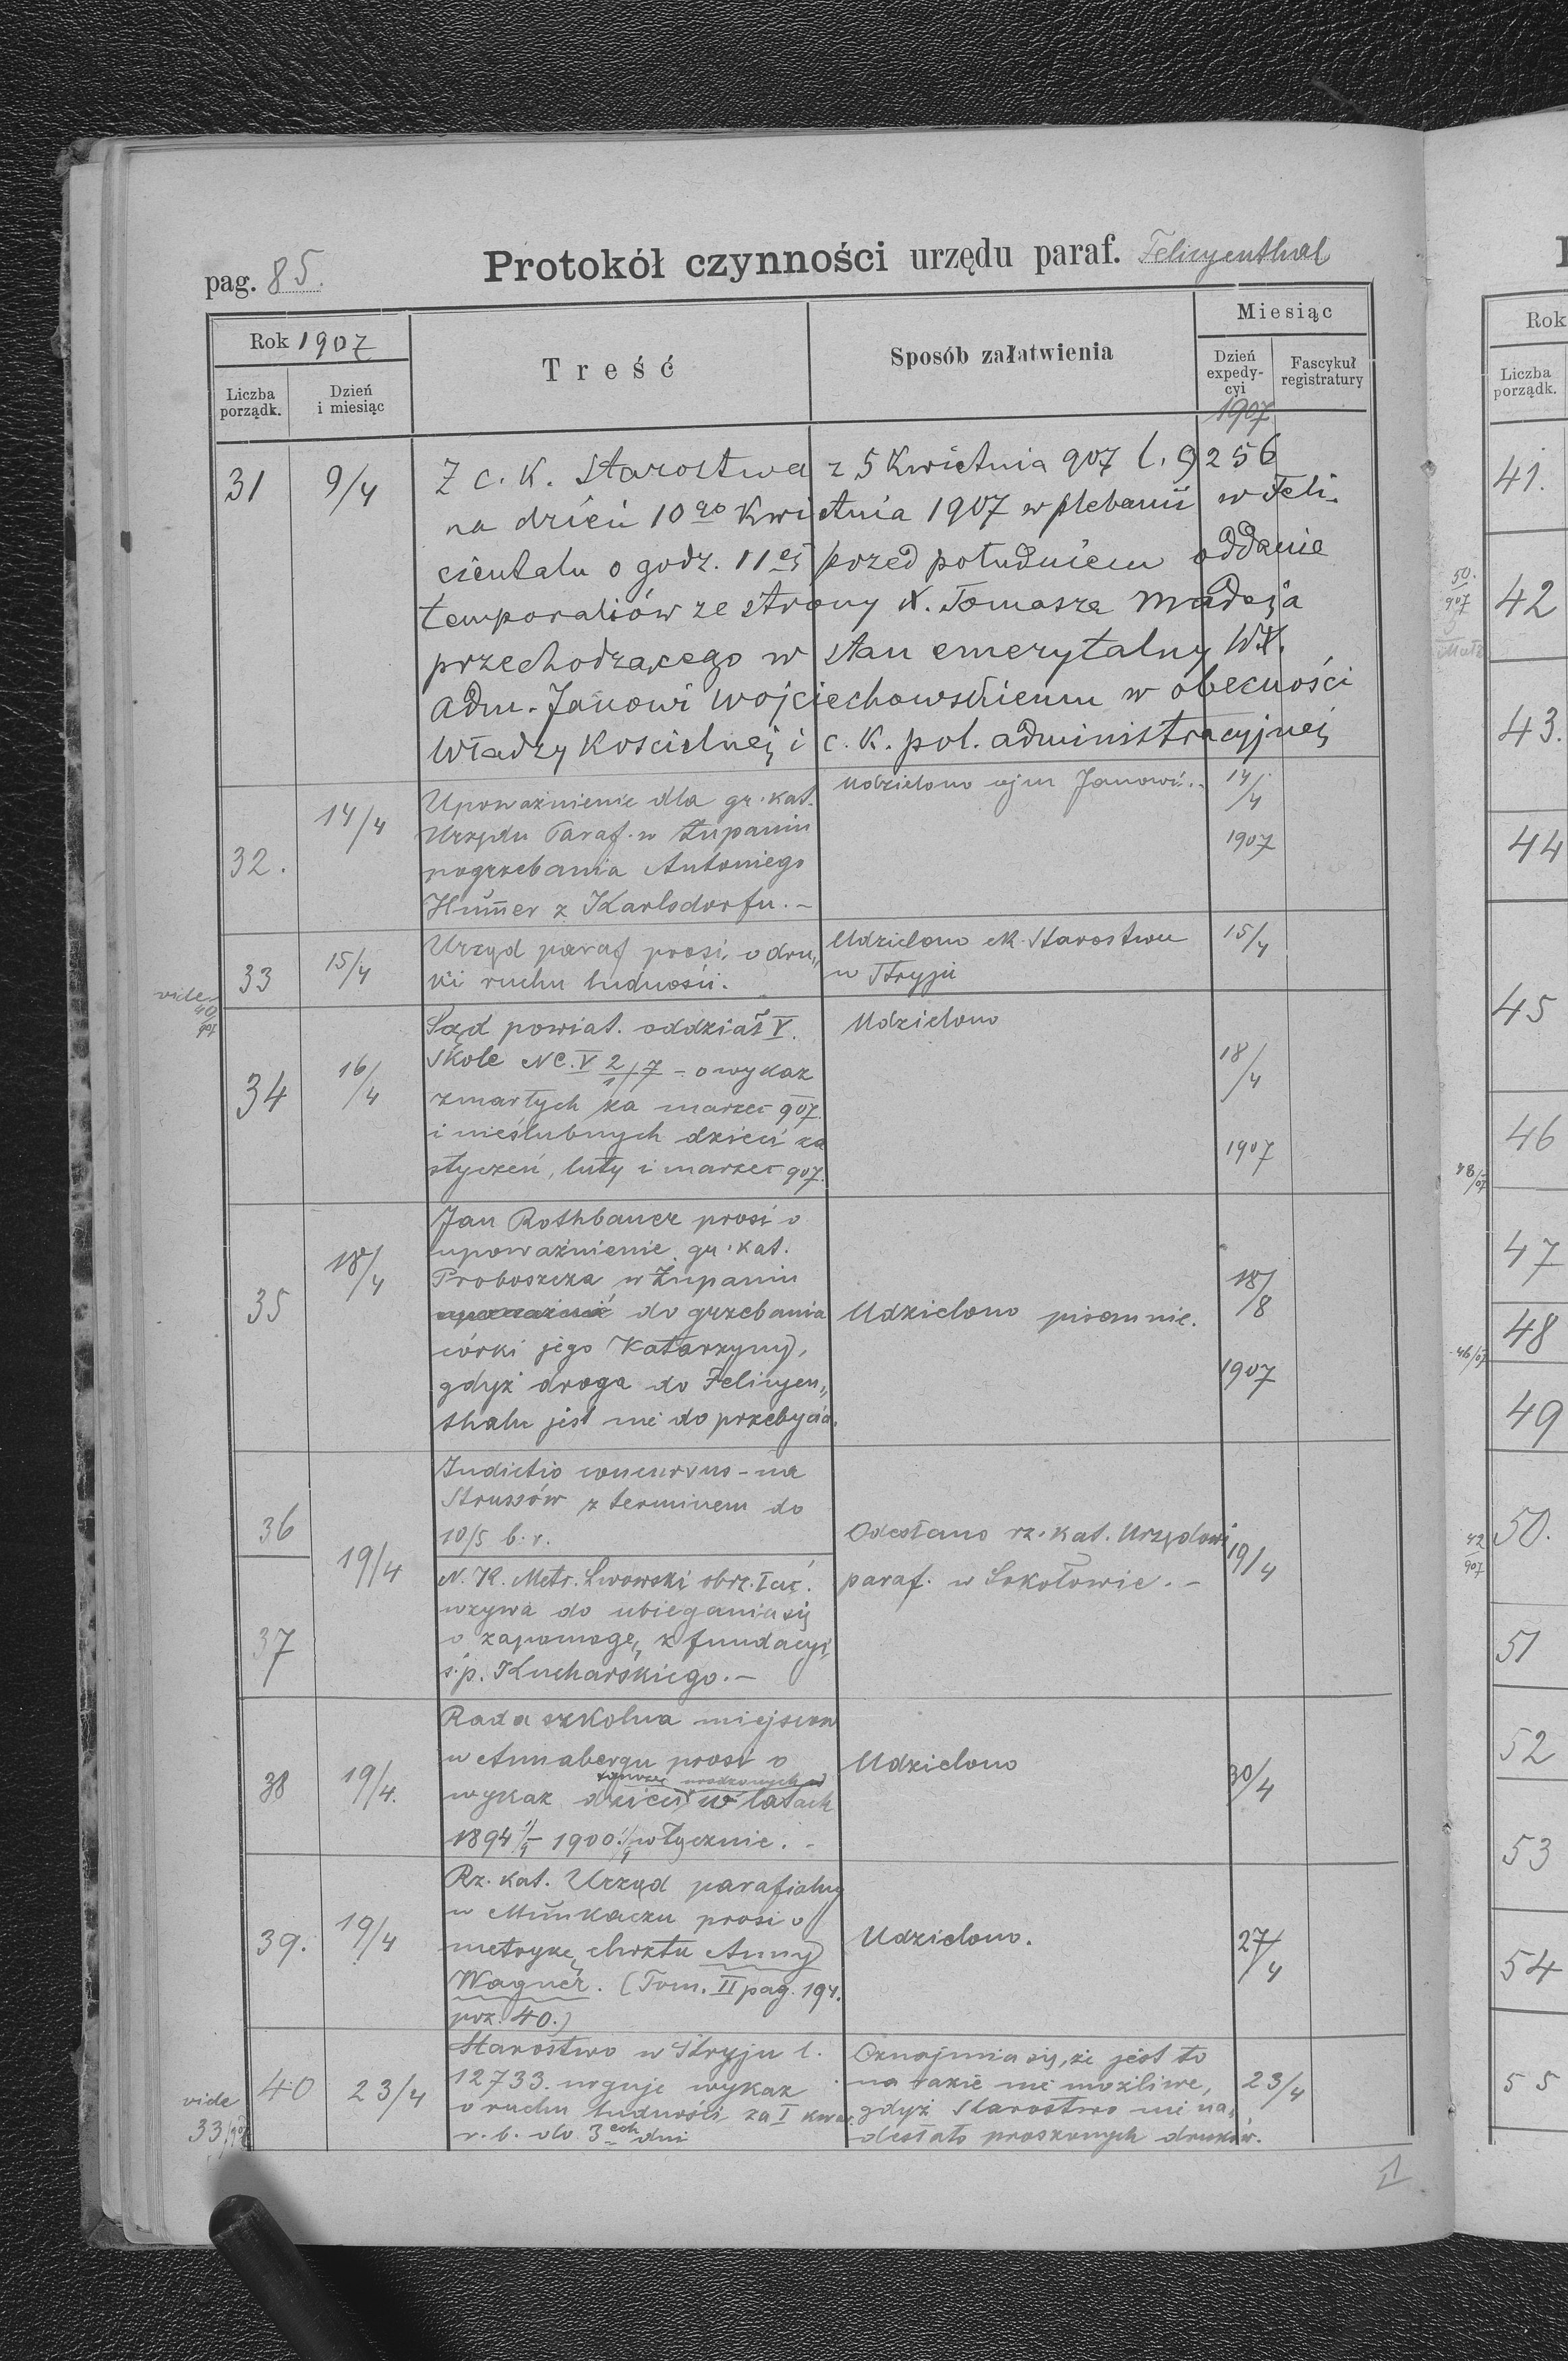 pag. 85.
Protokół czynności urzędu paraf. Felicyenthal
Rok 1907
Treść
Sposób załatwienia
Miesiąc
Liczba porządk.
Dzień i miesiąc
Dzień expedy-cyi
Fascykuł registratury
1907
31 9/4 Z c. k. Starostwa z 5 Kwietnia 907 l. 9256
na dzień 10go Kwietnia 1907 w plebanii w Feli-
cientalu o godz. 11ej przed południem oddanie
temporaliów ze strony X. Tomasza Madeja
przechodzącego w stan emerytalny WX.
adm. Janowi Wojciechowskiemu w obecności
Władzy Koscielnej i c. k. pol. administracyjnej
32. 14/4 Upoważnienie dla gr. kat. Udzielono Janowi. 14/4
Urzędu Paraf. w Żupaniu 1907
pogrzebania Antoniego
Hum̄er z Karlsdorfu. -
33 15/4 Urząd paraf prosi o dru„ Udzielono ck Starostwu 15/4
ki ruchu ludności. w Stryju
vide 40/907
34 16/4 Sąd powiat. oddział V. Udzielono 18/4
Skole NC. V 2/7 - o wykaz
zmarłych za marzec 907.
i nieślubnych dzieci za 1907
styczeń, luty i marzec 907.
35 18/4 Jan Rothbauer prosi o
upoważnienie gr. kat.
Proboszcza w Żupaniu 18/8
do grzebania Udzielono pisemnie.
córki jego Katarzyny,
gdyż droga do Felicyen„ 1907
thalu jest nie do przebycia.
36 19/4 Indictio concursus - na
Strussów z terminem do
10/5 b. r. Odesłano rz. kat. Urzędowi 19/4
37 N. K. Metr. Lwowski obrz. łać. paraf. w Sokołowie. -
wzywa do ubiegania się
o zapomogę z fundacyi
ś. p. Kucharskiego. -
38 19/4. Rada szkolna miejscow
w Annabergu prosi o Udzielono 30/4
urodzonych
wykaz dzieci w latach
1894 1/9 - 1900 1/9 włącznie. -
39. 19/4 Rz. kat. Urząd parafialny
w Munkaczu prosi o Udzielono. 27/4
metrykę chrztu Anny
Wagner. (Tom. II pag. 194.
poz. 40.)
40 23/4 Starostwo w Stryju l. Oznajmia się, że jest to 23/4
12733. urguje wykaz na razie nie możliwe,
o ruchu ludności za I kwar. gdyż Starostwo nie na„
r. b. do 3ech dni desłało proszonych druków.
vide 33/907
Rok
Liczba porządk.
41.
50./907
42
43.
44
45
46
48/07
47
48
46/07
49
42/907
50.
51
52
53
54
55